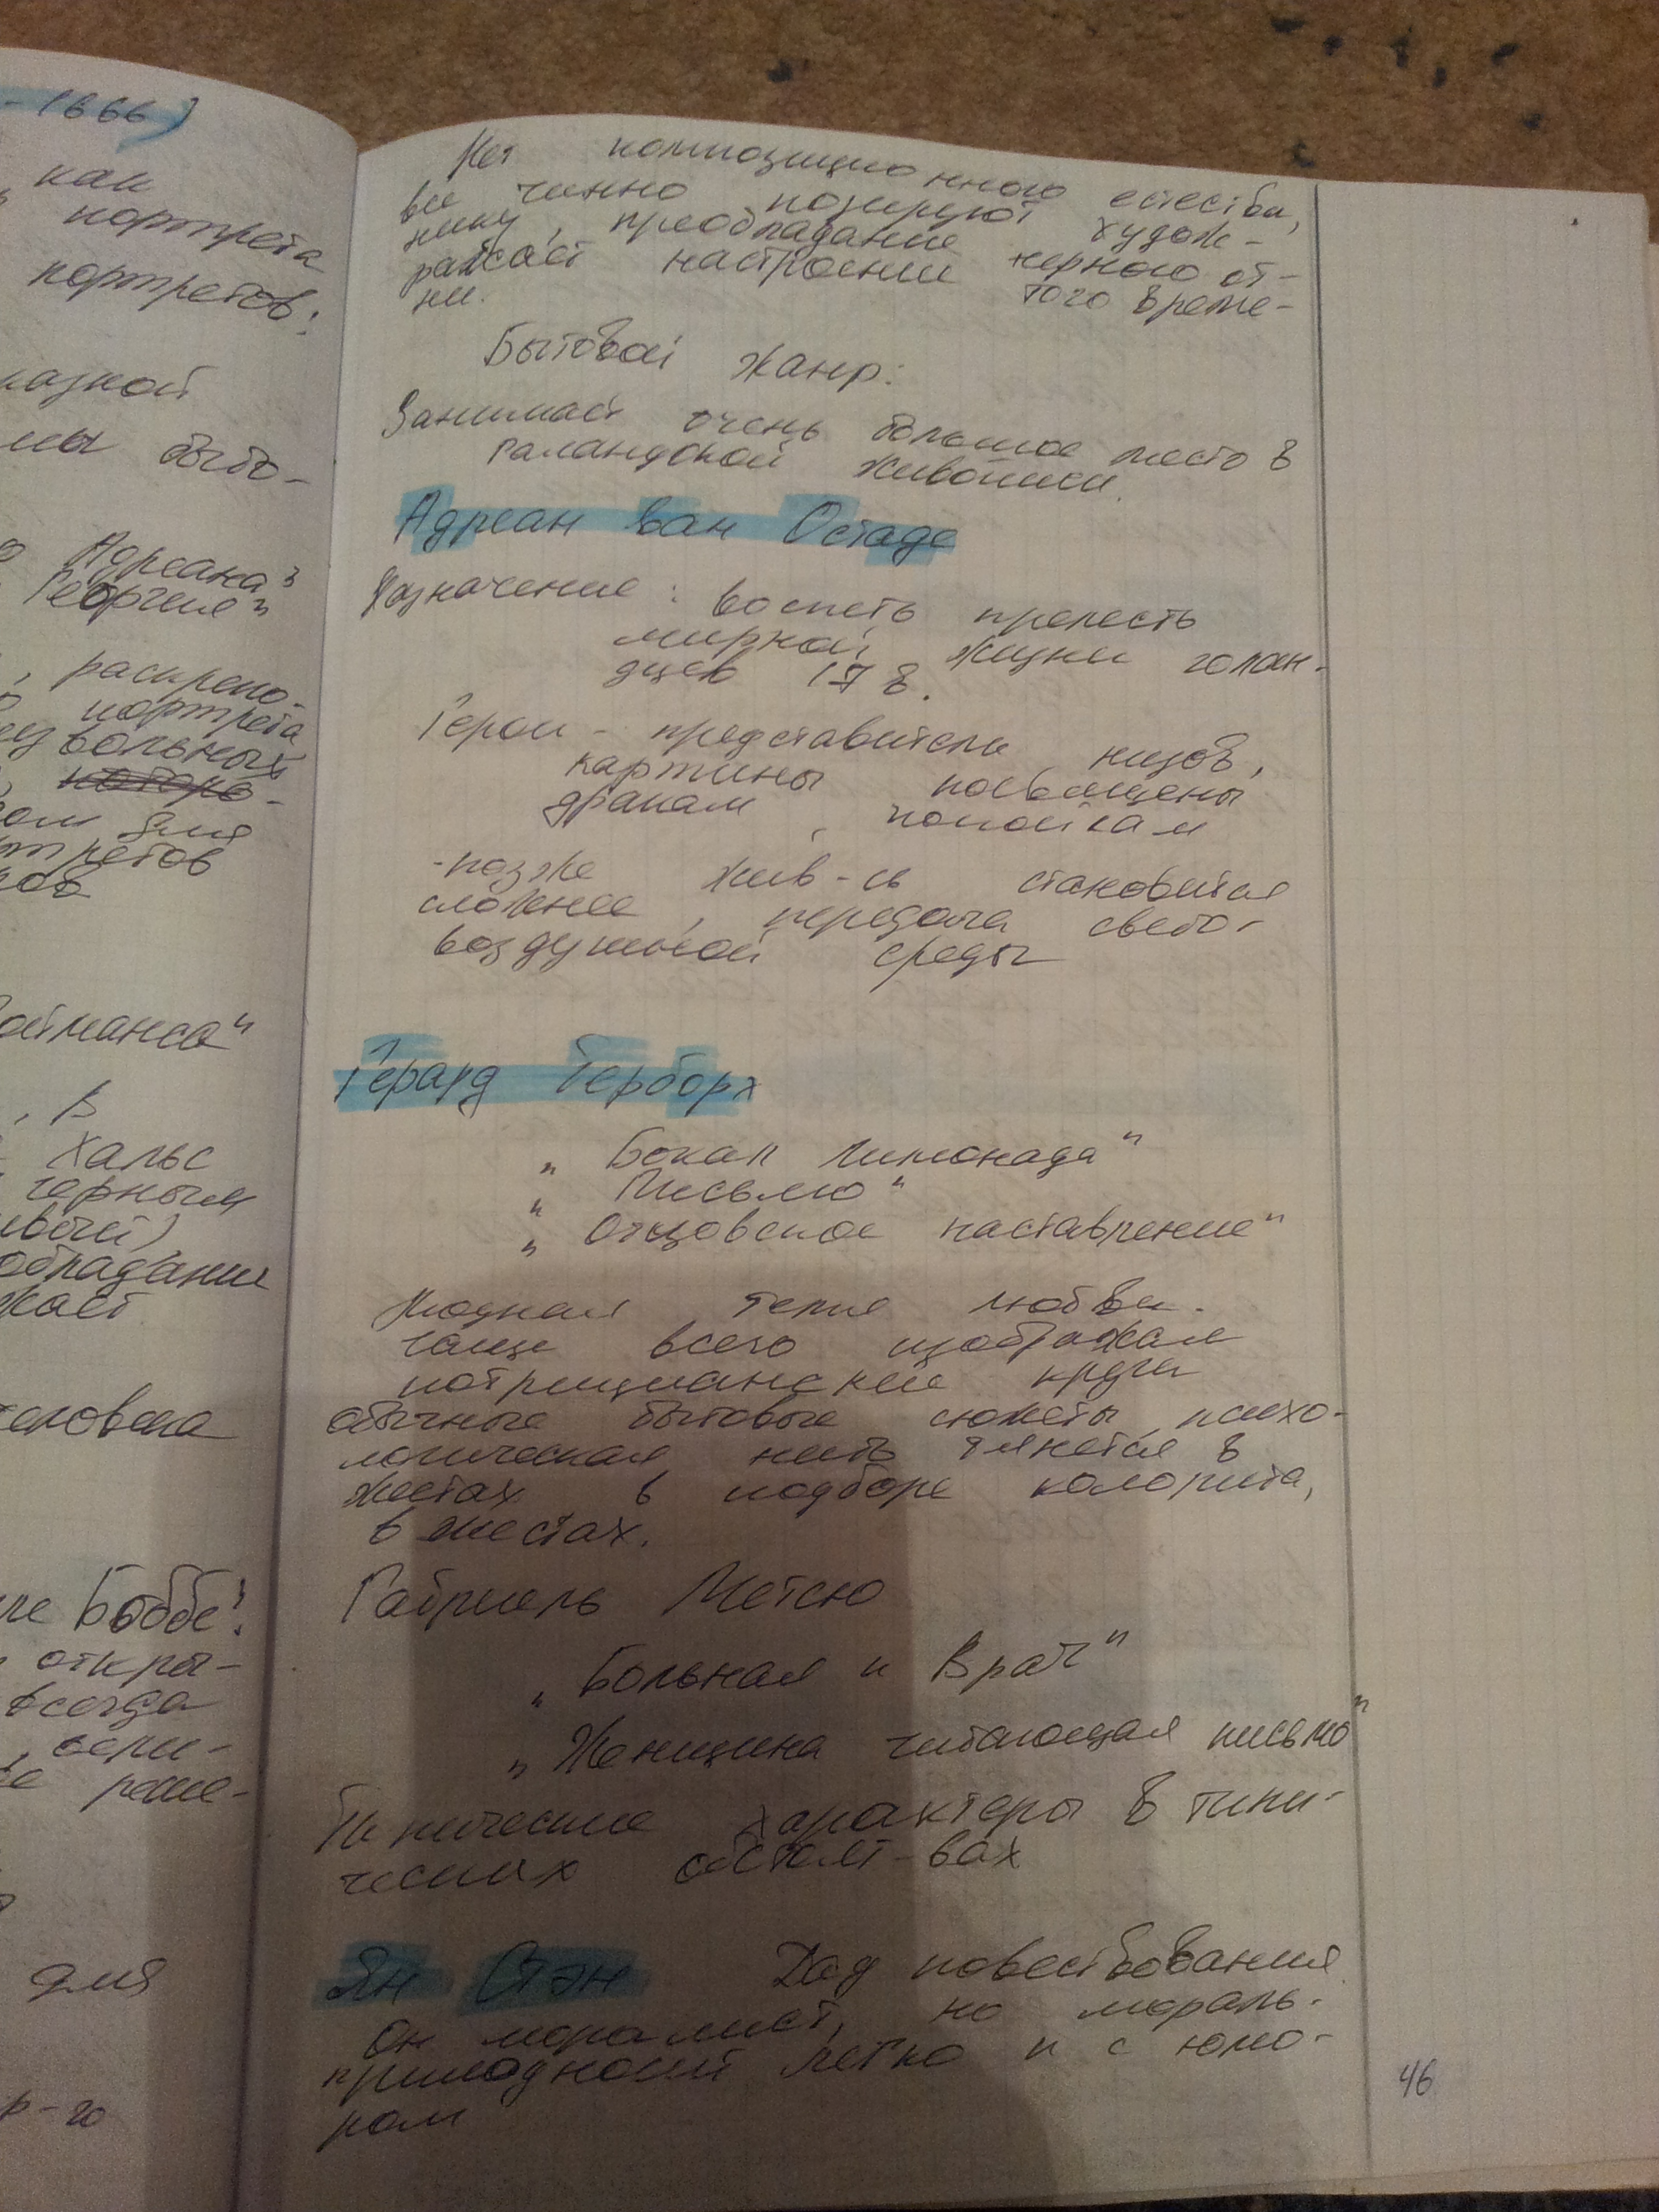 - 1666)
как
портрета
портретов:
казной
мы быто-
Адреана"
Георгия"
, распрепо-
портрета
вольных
которо-
для
третов
ков
ойтманса"
, В
Хальс
черным
ивый)
обладание
жает
человека
Боббе"
откры-
всегда
, сери-
реше-
для
р-го
Нет композиционного естества,
все чинно позируют худож-
нику, преобладание черного от-
ражает настроение того време-
ни.
Бытовой жанр:
Занимает очень большое место в
галандской живописи.
Адреан ван Остаде
Назначение: воспеть прелесть
мирной жизни голан-
дцев 17 в.
Герои - представители низов,
картины посвящены
дракам, попойкам
-позже жив-сь становится
сложнее, передача свето-
воздушной среды
Герард Терборх
„Бокал лимонада"
„Письмо"
„Отцовское наставление"
Модная тема любви.
чаще всего изображал
потрицианские круги
обычные бытовые сюжеты, психо-
логическая нить тянется в
жестах в подборе колорита,
в жестах.
Габриель Метсю
„Больная и Врач"
„Женщина читающая письмо"
Типические характеры в типи-
ческих обстоят-вах
Ян Стэн Дад повествования
Он моралист, но мораль-
приподносит легко и с юмо-
ром
46